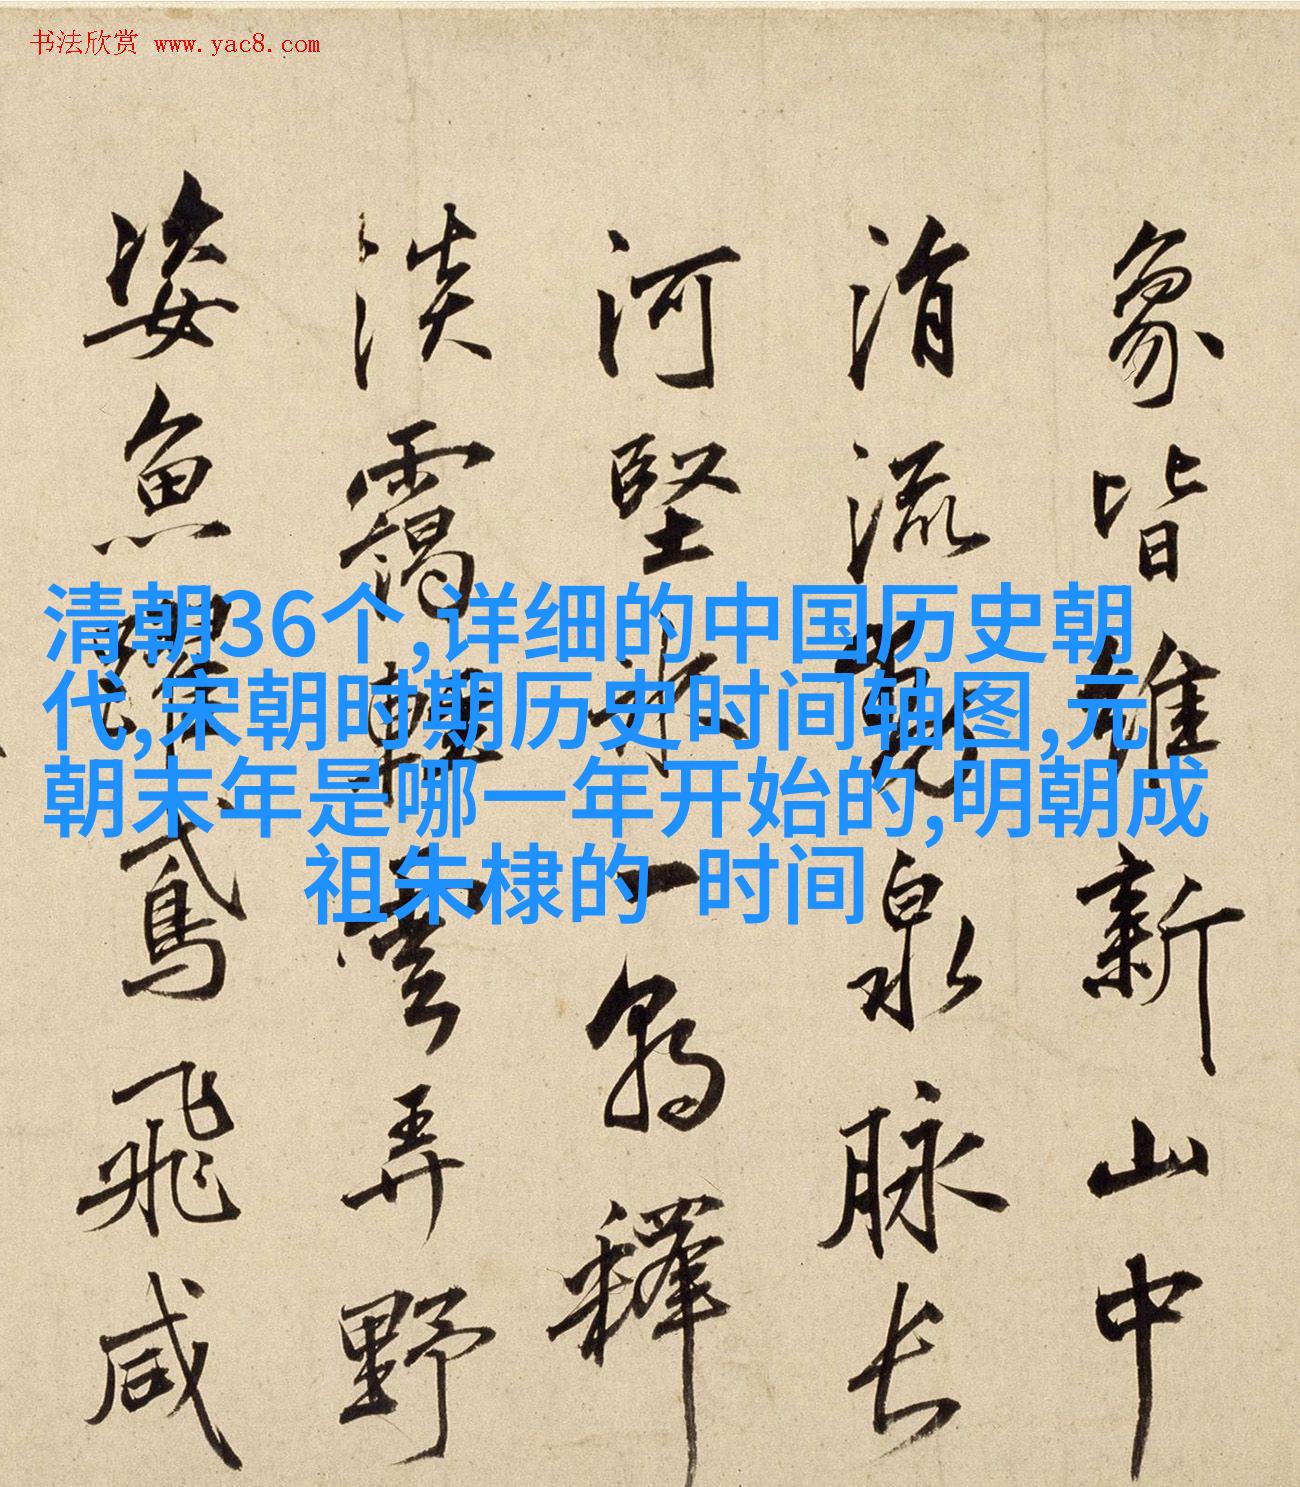 书法欣赏 www.yac8.com
清朝36个,详细的中国历史朝
代,宋朝时期历史时间轴图,元
朝末年是哪一年开始的,明朝成
祖朱棣的 时间
象皆維新山中
涓流泉脉長
河堅冰一釋
淡靄輕雲弄野
姿魚躍鳶飛咸